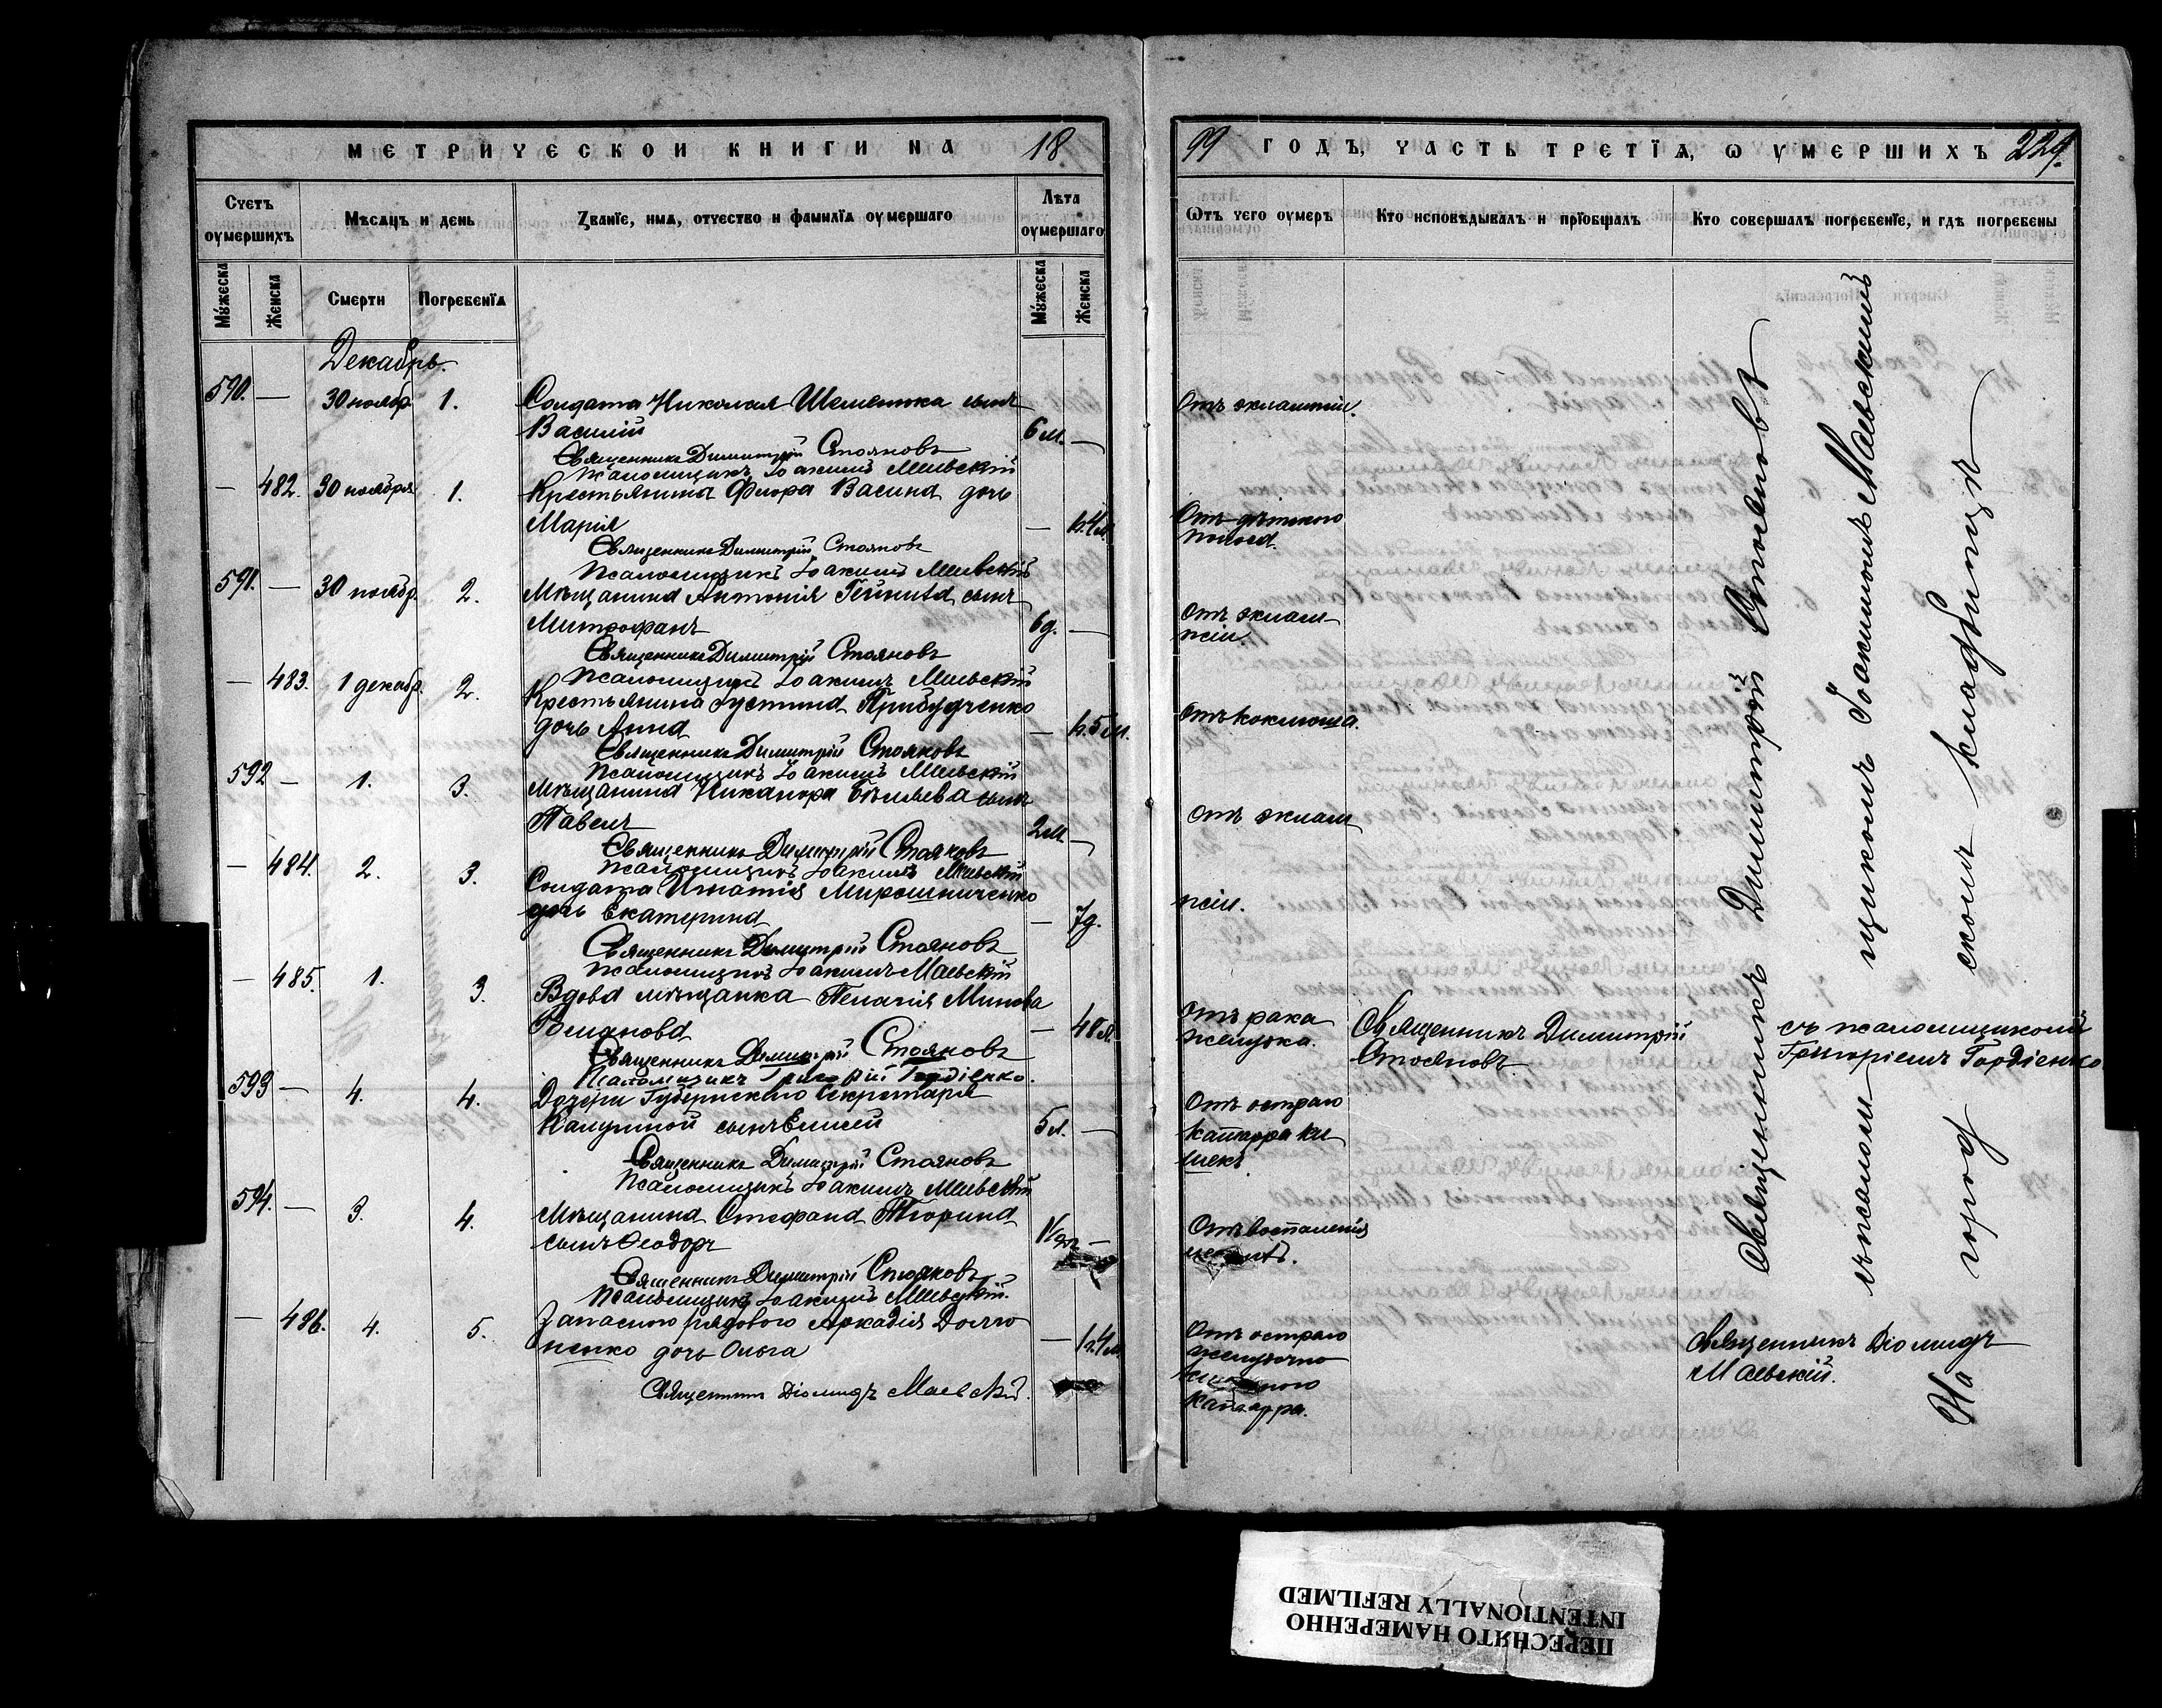 МЕТРИЧЕСКОЙ КНИГИ НА 18
Счетъ оумершихъ
Мѣсяцъ и день
Званїе, имя, отчество и фамилїя оумершаго
Лѣта оумершаго
Мужеска
Женска
Смерти
Погребенїя
Мужеска
Женска
Декабрь.
590. — 30 ноябр 1. Солдата Николая Шеметока сынъ
Василій 6 м. —
Священникъ Димитрій Стояновъ
Псаломщикъ Іоакимъ Маевскій
— 482. 30 ноября 1. Крестьянина Флора Васина дочь
Марія —
Священникъ Димитрій Стояновъ
Псаломщикъ Іоакимъ Маевскій
591. — 30 ноябр. 2. Мѣщанина Антонія сынъ
Митрофанъ 6 д. —
Священникъ Димитрій Стояновъ
Псаломщикъ Іоакимъ Маевскій
— 483. 1 декабр. 2. Крестьянина Іустина Прибудченко
дочь Анна —
Священникъ Димитрій Стояновъ
Псаломщикъ Іоакимъ Маевскій
592 — 1. 3. Мѣщанина Никанора Бѣляева сынъ
Павелъ 2 м —
Священникъ Димитрій Стояновъ
Псаломщикъ Іоакимъ Маевскій
— 484. 2. 3. Солдата Игнатія Мирошниченко
дочь Екатерина — 7 д.
Священникъ Димитрій Стояновъ
Псаломщикъ Іоакимъ Маевскій
— 485. 1. 3. Вдова мѣщанка Пелагія Минова
Романова — 48 л.
Священникъ Димитрій Стояновъ
Псаломщикъ Григорій Гордіенко.
593 — 4. 4. Дочери Губернскаго Секретаря
сынъ Елисей 5 л. —
Священникъ Димитрій Стояновъ
Псаломщикъ Іоакимъ Маевскій
594. — 3. 4. Мѣщанина Стефана Тюрина
сынъ Ѳеодоръ —
Священникъ Димитрій Стояновъ
Псаломщикъ Іоакимъ Маевскій.
— 486. 4. 5. Запасного рядового Аркадія Долго
ненко дочь Ольга —
Священникъ Діомидъ Маевскій.
99 ГОДЪ, ЧАСТЬ ТРЕТЇЯ, Ѡ УМЕРШИХЪ 229.
Ѿтъ чего оумеръ
Кто исповѣдывалъ и прїобщалъ
Кто совершалъ погребенїе, и гдѣ погребены
Отъ эклампсіи.
Отъ дѣтского
поноса.
Отъ эклам
псіи.
Отъ коклюша.
Отъ эклам
псіи.
Отъ рака
желудка.
Священникъ Димитрій
Стояновъ
съ псаломщикомъ
Григоріемъ Гордіенко
Отъ остраго
катарра ки
шекъ.
Отъ воспаленія
Отъ остраго
желудочно
катарра.
Священникъ Діомидъ
Маевскій.
Священникъ Димитрій Стояновъ
съ псаломщикомъ Іоакимомъ Маевскимъ
На городскомъ кладбищѣ
ПЕРЕСНЯТО НАМЕРЕННО
INTENTIONALLY REFILMED